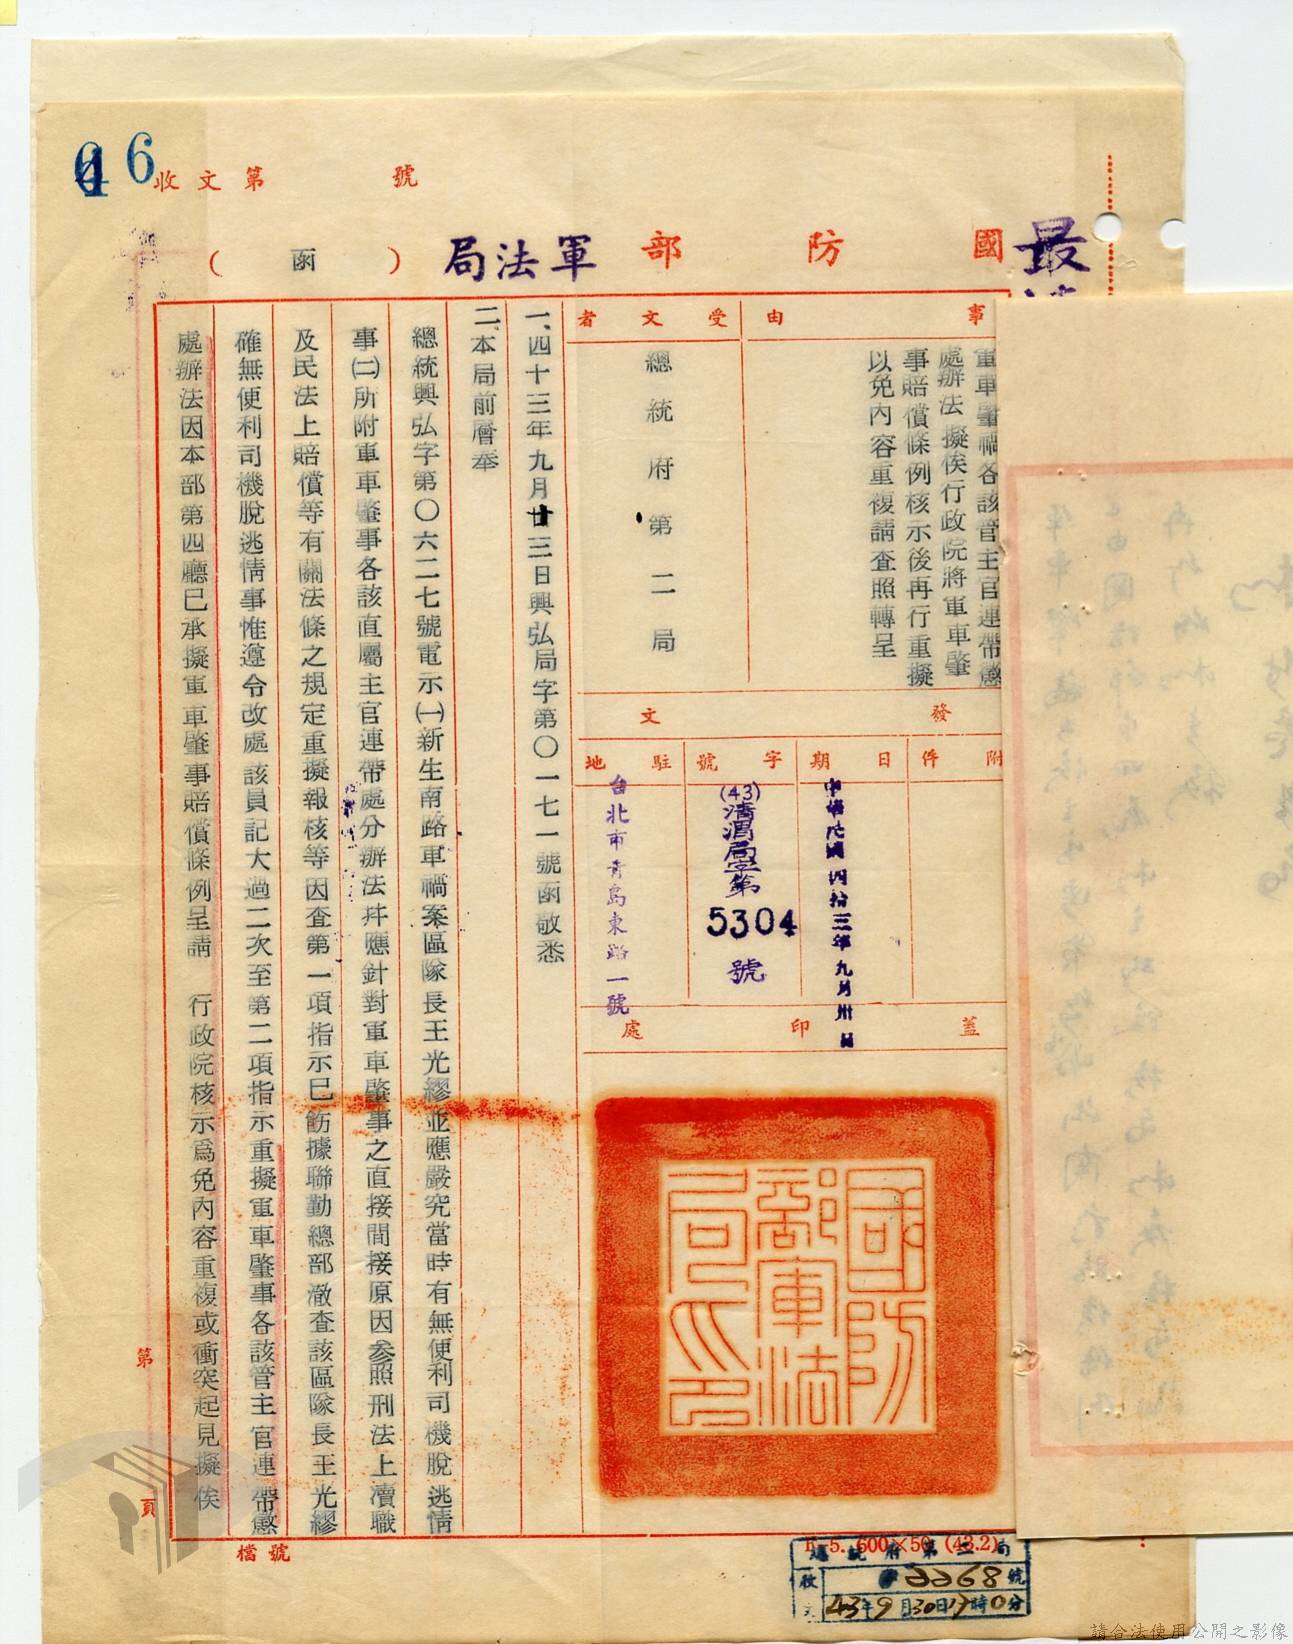 46
6
收文第 號
國防部軍法局（函）
最
事由
軍車肇禍各該管主官連帶懲
處辦法擬俟行政院將軍車肇
事賠償條例核示後再行重擬
以免內容重複請查照轉呈
受文者
總統府第二局
發文
附件
日期
中華民國四拾三年九月卅日
字號
(43)清渭局字第
5304
號
駐地
台北市青島東路一號
蓋印處
國防部軍法局印
一、四十三年九月廿三日興弘局字第〇一七一號函敬悉
二、本局前曆奉
總統興弘字第〇六二七號電示㈠新生南路車禍案區隊長王光繆並應嚴究當時有無便利司機脫逃情
事㈡所附軍車肇事各該直屬主官連帶處分辦法并應針對軍車肇事之直接間接原因參照刑法上瀆職
及民法上賠償等有關法條之規定重擬報核等因查第一項指示已飭據聯勤總部澈查該區隊長王光繆
確無便利司機脫逃情事惟遵令改處該員記大過二次至第二項指示重擬軍車肇事各該管主官連帶懲
處辦法因本部第四廳已承擬軍車肇事賠償條例呈請 行政院核示爲免內容重複或衝突起見擬俟
第
頁
檔號
P-5. 600×50 (43.2)
總統府第二局
收文 2268號
43年9月30日17時0分
請合法使用公開之影像